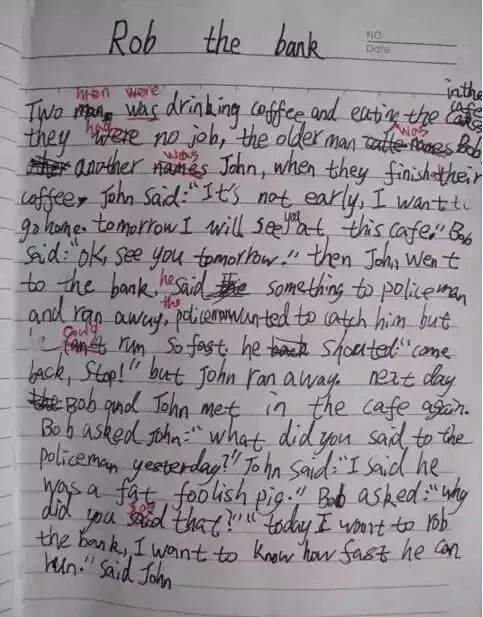 Rob the bank
NO
Date
men were in the
Two man was drinking coffee and eating the cafe
had was
they were no job, the older man names Bob
was
another names John, when they finish their
coffee, John said: "It's not early, I want to
go home. tomorrow I will see you at this cafe." Bob
said: "OK, see you tomorrow." then John went
to the bank, he said something to policeman
and ran away, the policeman wanted to catch him but
could
can't run so fast. he back shouted: "come
back, Stop!" but John ran away. next day
the Bob and John met in the cafe again.
Bob asked John: "what did you said to the
policeman yesterday?" John said: "I said he
was a fat foolish pig." Bob asked: "why
say
did you said that?" "today I want to rob
the bank, I want to know how fast he can
run." said John